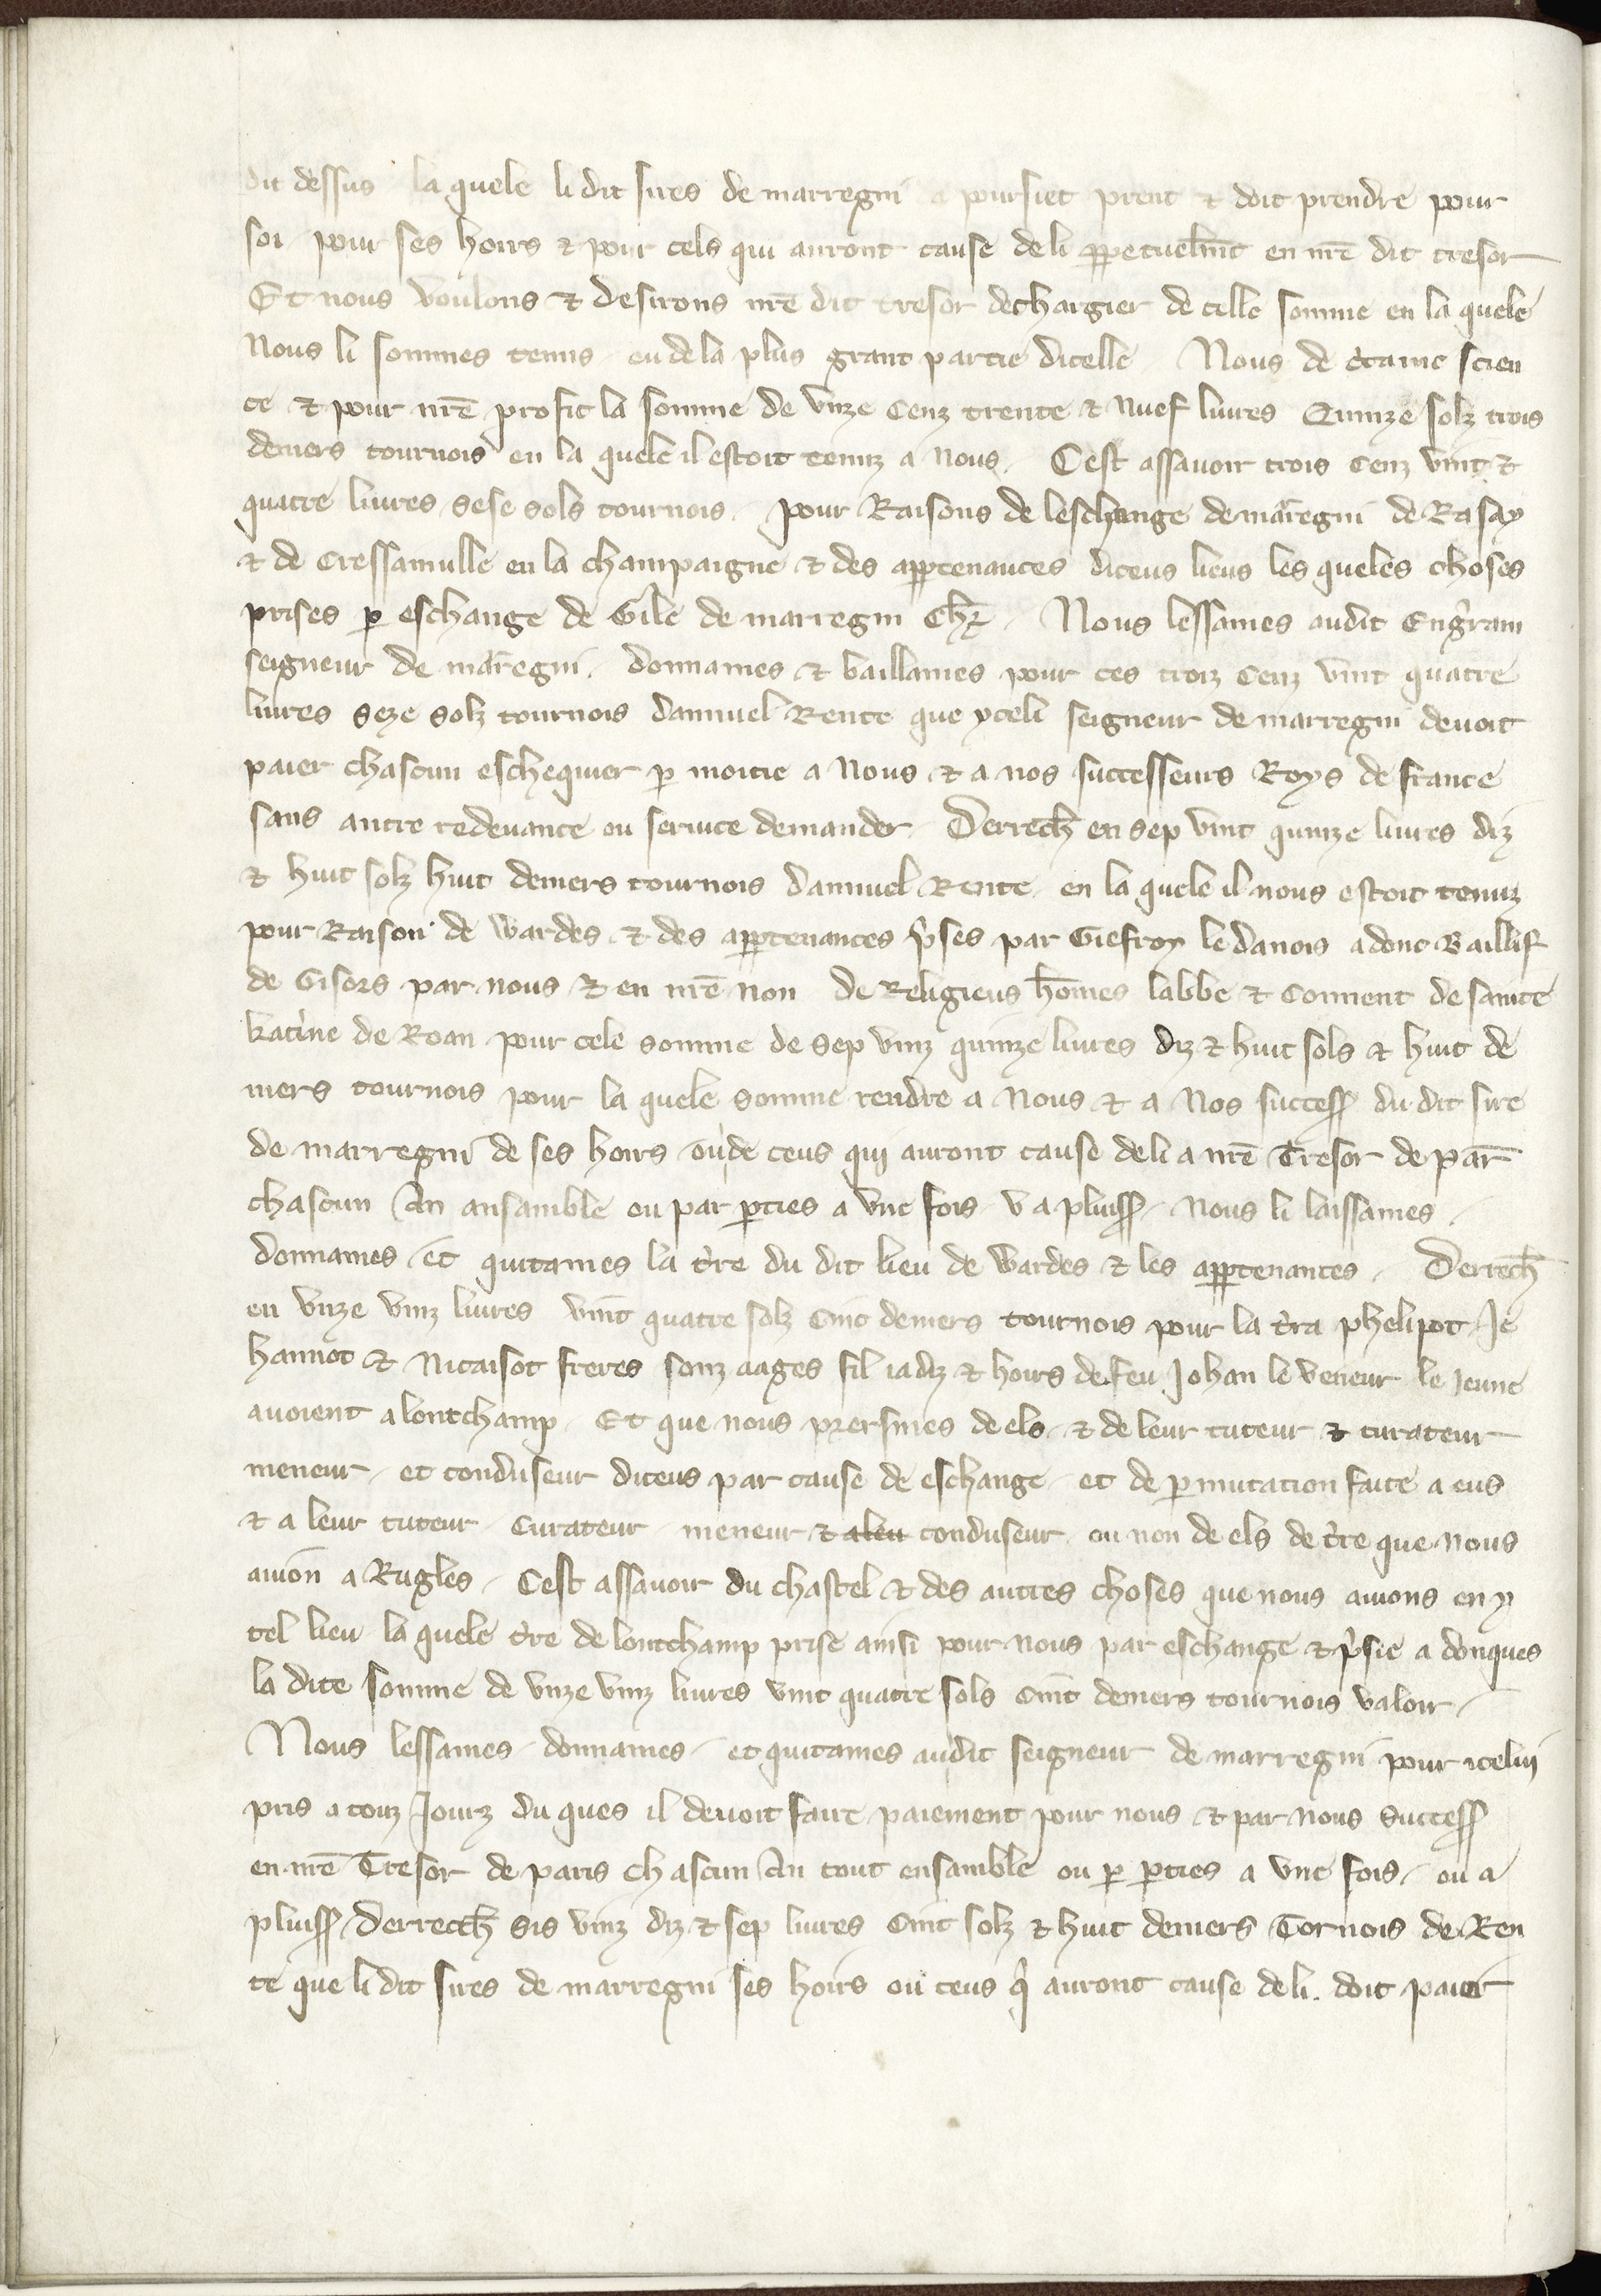 dit dessus la quele li dit sires de marregni a poursiet prent & doit prendre pour
soi pour ses hoirs & pour cels qui auront cause de li ppetuelmt en nr̃e dit tresor
Et nous voulons & desirons nr̃e dit tresor dechargier de celle somme en la quele
Nous li sommes tenus ou de la plus grant partie dicelle Nous de c̾taine scien
ce & pour nr̃e profit la somme de vnze cenz trente & nuef liures Quinze solz trois
deniers tournois en la quele il estoit tenuz a nous. Cest assauoir trois cenz vint &
quatre liures sese sols tournois. pour Raisons de leschange de marregni de Rasay
& de Cressanuille en la champaigne & des apptenances diceus lieus les queles choses
prises p eschange de Gile de marregni Chr̃. Nous lessames audit Engr̾ran
seigneur de marregni. donnames & baillames pour ces troiz cenz vint quatre
liures seze solz tournois dannuel Rente que yceli seigneur de marregni deuoit
paier chascun eschequier p moitie a Nous & a nos successeurs Roys de france
sans autre redeuance ou seruice demander. Derrech̃ en sep vint quinze liures diz
& huit solz huit deniers tournois dannuel Rente en la quele il nous estoit tenuz
pour Raison de wardes & des apptenances p̾ses par Giefroy le danois adonc Baillif
de Gisors par nous & en nr̃e non de Religieus hõmes labbe & Conuent de sainte
kat̾ine de Roan pour cele somme de sep vinz quinze liures diz & huit sols & huit de
niers tournois pour la quele somme rendre a Nous & a Nos success̃ du dit sire
de marregni de ses hoirs ou de ceus qui auront cause de li a nr̃e Tresor de par̃
chascun An ansamble ou par pties a vne fois v a pluiss̃. Nous li laissames.
donnames et quitames la t̾re du dit lieu de wardes & les apptenances. Derrech̃
en vnze vinz liures vint quatre solz cinc deniers tournois pour la t̾ra phelipot Je
hannot & Nicaisot freres souz aages fil iadiz & hoirs de feu Johan le veneur le Jeune
auoient a lontchamp. Et que nous preismes de els & de leur tuteur & curateur
meneur et conduseur diceus par cause de eschange et de pmutacion faite a eus
& a leur tuteur Curateur meneur & aleu conduseur ou non de els de t̾re que nous
auion a Rugles. Cest assauoir du chastel & des autres choses que nous auions en y
tel lieu la quele t̾re de lontchamp prise ainsi pour nous par eschange & p̾sie a donques
la dite somme de vnze vinz liures vint quatre sols cinc deniers tournois valoir.
Nous lessames donnames et quitames audit seigneur de marregni pour icelui
pris a touz Jourz du ques il deuoit faire paiement pour nous & par nous success̃
en nr̃e Tresor de paris chascun An tout ensamble ou p pties a vne fois ou a
pluiss̃. Derrech̃ sis vinz diz & sep liures Cinc solz & huit deniers Tornois de Ren
te que li dit sires de marregni ses hoirs ou ceus q̾ auront cause de li. doit paier